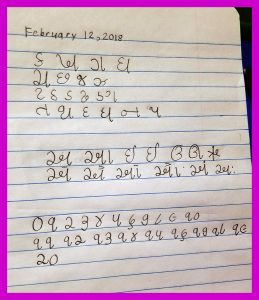 February 12, 2018
ક ખ ગ ઘ
ચ છ જ ઝ
ટ ઠ ડ ઢ ણ
ત થ દ ધ ન પ
અ આ ઇ ઈ ઉ ઊ ઋ
એ ઐ ઓ ઔ અં અઃ
૦ ૧ ૨ ૩ ૪ ૫ ૬ ૭ ૮ ૯ ૧૦
૧૧ ૧૨ ૧૩ ૧૪ ૧૫ ૧૬ ૧૭ ૧૮ ૧૯
૨૦